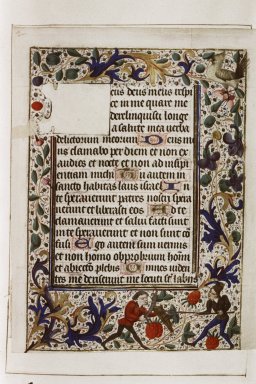 eus deus meus respi
ce in me quare me
dereliquisti longe
a salute mea verba
delictorum meorum Deus me
us clamabo per diem et non ex
audies et nocte et non ad insipi
entiam michi Tu autem in
sancto habitas laus israel In
te speraverunt patres nostri spera
verunt et liberasti eos Ad te
clamaverunt et salvi facti sunt
in te speraverunt et non sunt co
fusi Ego autem sum vermis
et non homo obprobrium homi
et abiectio plebis Omnes viden
tes me deriserunt me locuti st labiis